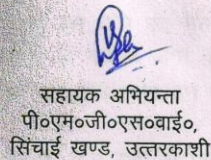 सहायक अभियन्ता
पी०एम०जी०एस०वाई०,
सिंचाई खण्ड, उत्तरकाशी